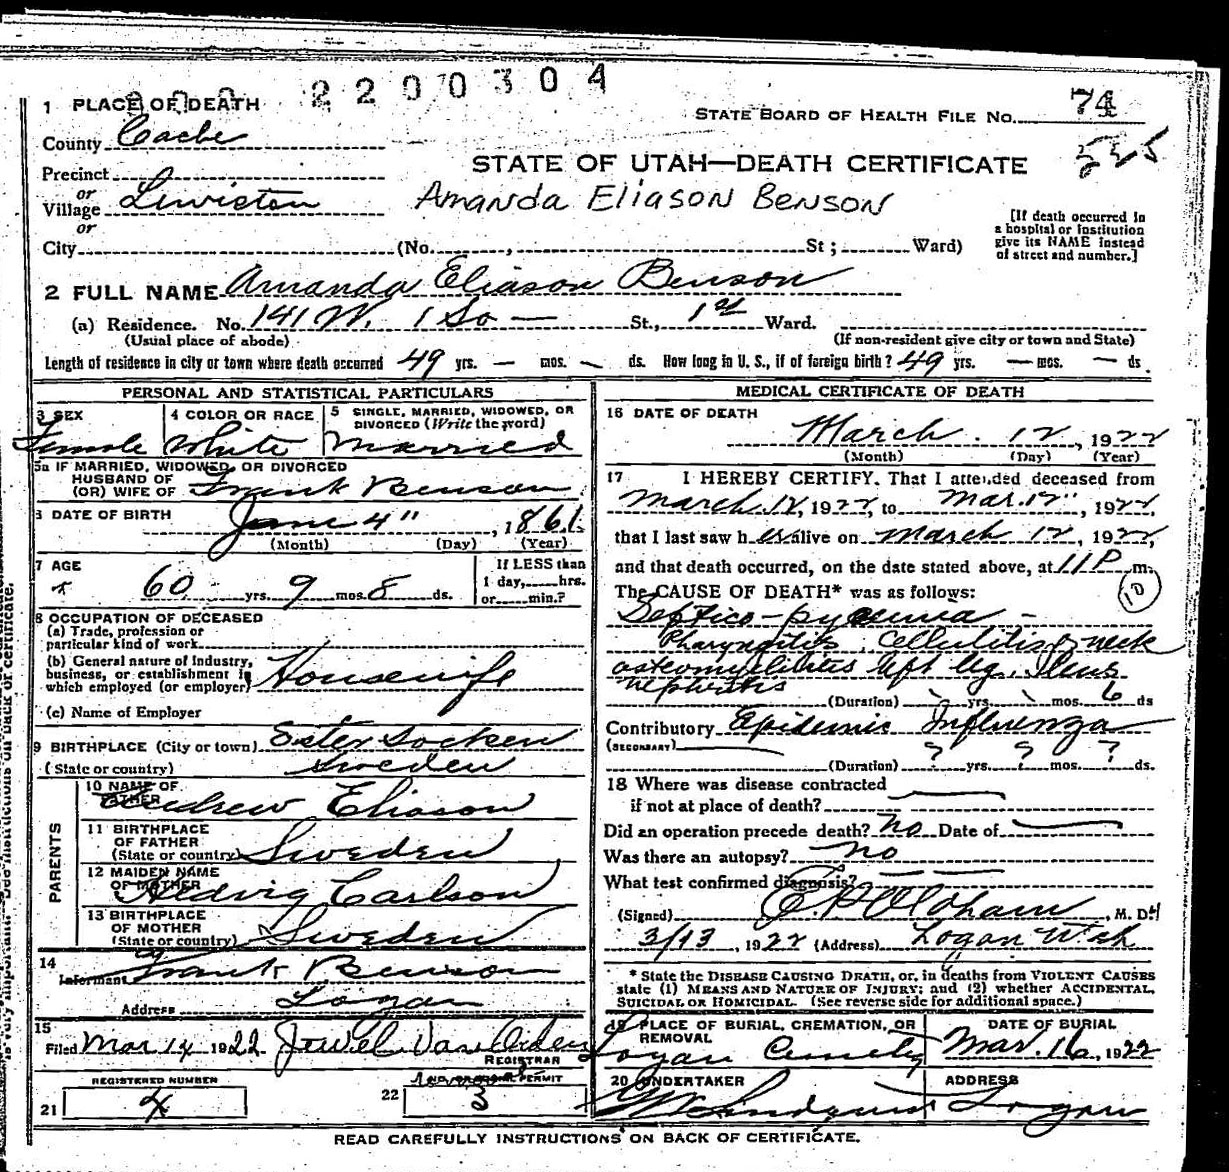 2200304
1 PLACE OF DEATH
STATE BOARD OF HEALTH FILE NO. 74
County Cache
525
STATE OF UTAH—DEATH CERTIFICATE
Precinct
or
Village Lewiston
Amanda Eliason Benson
or
[If death occurred in a hospital or institution give its NAME instead of street and number.]
City (No. , St ; Ward)
2 FULL NAME Amanda Eliason Benson
(a) Residence. No. 141 W. 1 So — St., 1st Ward.
(Usual place of abode) (If non-resident give city or town and State)
Length of residence in city or town where death occurred 49 yrs. — mos. — ds. How long in U. S., if of foreign birth? 49 yrs. — mos. — ds
PERSONAL AND STATISTICAL PARTICULARS
3 SEX Female
4 COLOR OR RACE White
5 SINGLE, MARRIED, WIDOWED, OR DIVORCED (Write the word) Married
5a IF MARRIED, WIDOWED, OR DIVORCED
HUSBAND OF
(OR) WIFE OF Frank Benson
6 DATE OF BIRTH June 4", 1861.
(Month) (Day) (Year)
7 AGE
60 yrs. 9 mos. 8 ds.
If LESS than
1 day, hrs.
or min.?
8 OCCUPATION OF DECEASED
(a) Trade, profession or
particular kind of work
(b) General nature of industry,
business, or establishment in
which employed (or employer) Housewife
(c) Name of Employer
9 BIRTHPLACE (City or town) Ester Socken
(State or country) Sweden
PARENTS
10 NAME OF FATHER Andrew Eliason
11 BIRTHPLACE
OF FATHER
(State or country) Sweden
12 MAIDEN NAME
OF MOTHER Hedvig Carlson
13 BIRTHPLACE
OF MOTHER
(State or country) Sweden
14
Informant Frank Benson
Address Logan
15
Filed Mar 14 1922 Jewel Van Orden
REGISTRAR
REGISTERED NUMBER
21 4
PERMIT
22 3
MEDICAL CERTIFICATE OF DEATH
16 DATE OF DEATH
March 12, 1922
(Month) (Day) (Year)
17 I HEREBY CERTIFY, That I attended deceased from
March 12, 1922, to Mar. 12", 1922,
that I last saw her alive on March 12, 1922,
and that death occurred, on the date stated above, at 11 P m.
The CAUSE OF DEATH* was as follows:
10
Septico-pyaemia —
Pharyngitis, Cellulitis of neck
osteomyelitis left leg, Ileus
nephritis
(Duration) yrs. mos. 6 ds
Contributory Epidemic Influenza
(SECONDARY)
(Duration) ? yrs. ? mos. ? ds.
18 Where was disease contracted
if not at place of death?
Did an operation precede death? No Date of
Was there an autopsy? no
What test confirmed diagnosis?
(Signed) Oldham, M. D.
3/13, 1922 (Address) Logan Utah
* State the DISEASE CAUSING DEATH, or, in deaths from VIOLENT CAUSES
state (1) MEANS AND NATURE OF INJURY; and (2) whether ACCIDENTAL,
SUICIDAL OR HOMICIDAL. (See reverse side for additional space.)
19 PLACE OF BURIAL, CREMATION, OR REMOVAL
Logan Cemetery
DATE OF BURIAL
Mar. 16, 1922
20 UNDERTAKER
ADDRESS
Logan
READ CAREFULLY INSTRUCTIONS ON BACK OF CERTIFICATE.